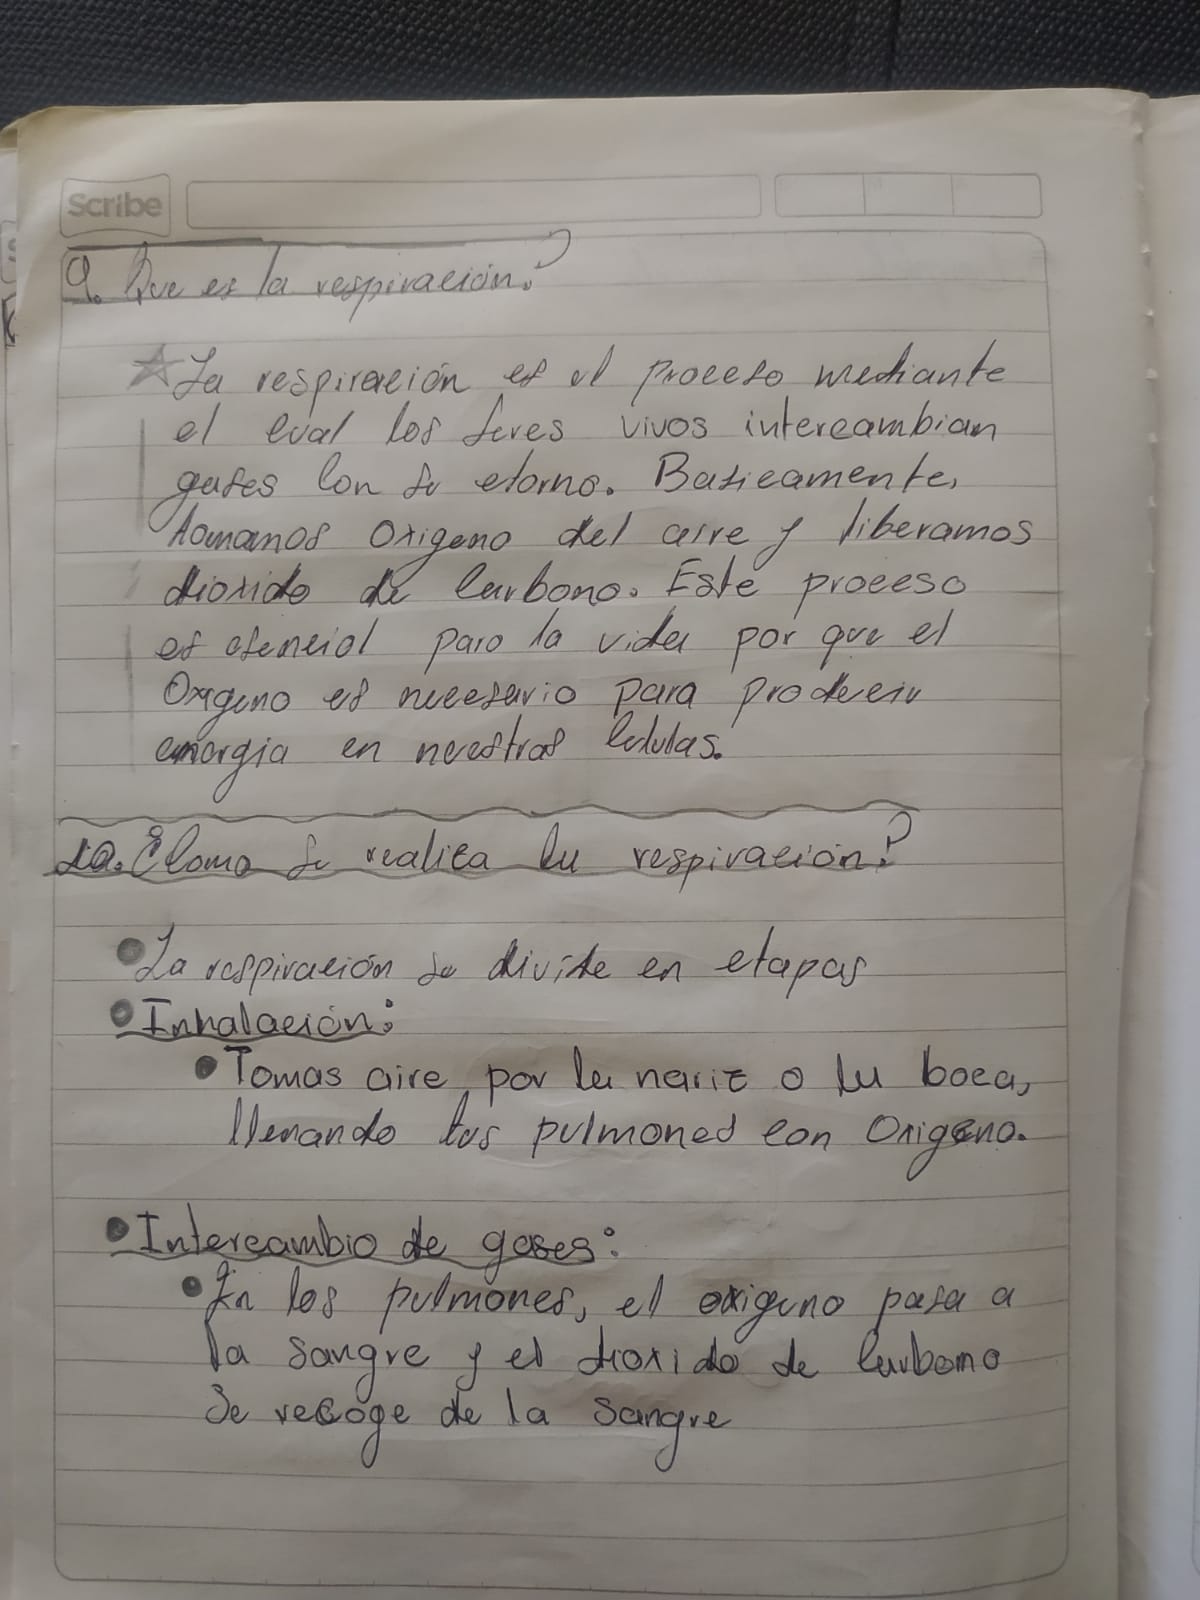 Scribe
9. Que es la respiración?
La respiración es el proceso mediante
el cual los seres vivos intercambian
gases con su etorno. Basicamente,
tomamos oxigeno del aire y liberamos
dioxido de carbono. Este proceso
es esencial para la vida por que el
Oxigeno es necesario para producir
energia en nuestras celulas.
10. ¿Como se realiza la respiración?
La respiración se divide en etapas
Inhalación:
Tomas aire por la nariz o tu boca,
llenando tus pulmones con Oxigeno.
Intercambio de gases:
En los pulmones, el oxigeno pasa a
la sangre y el dioxido de carbono
se recoge de la sangre